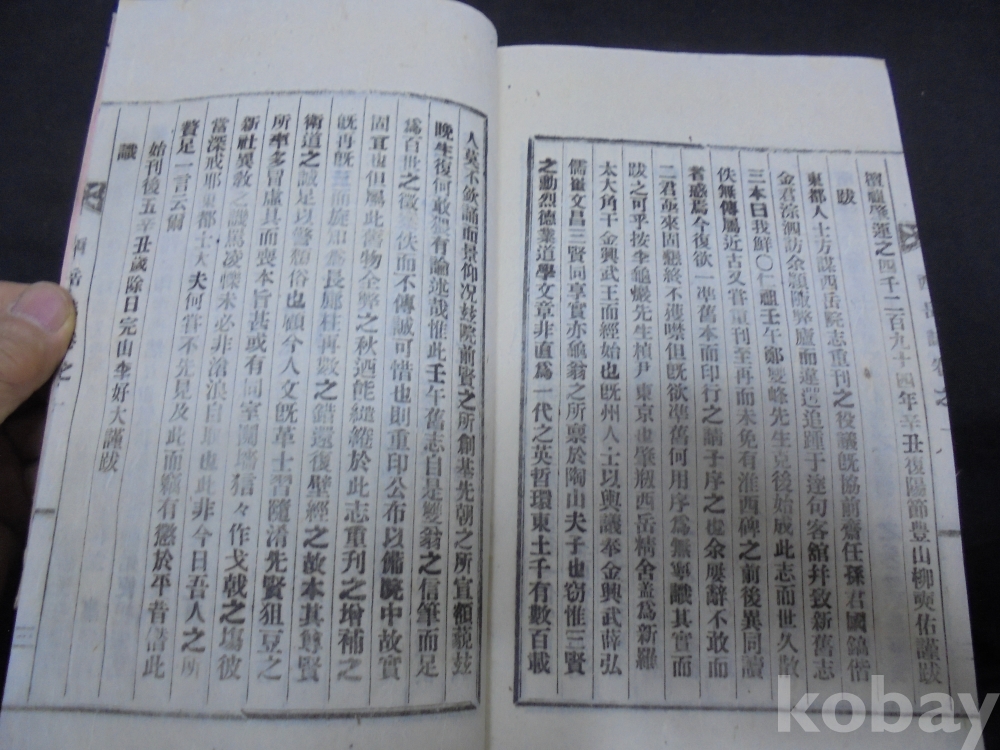 檀君肇運之四千二百九十四年辛丑復陽節豊山柳奭佑謹跋
跋
東都人士方謀西岳院志重刊之役議旣協前齋任孫君國鎬偕
金君淙泗訪余顧陂弊廬而違遌追踵于達句客舘幷致新舊志
三本曰我鮮〇仁祖壬午鄭雙峰先生克後始成此志而世久散
佚無傳屬近古又嘗重刊至再而未免有淮西碑之前後異同讀
者惑焉今復欲一準舊本而印行之請子序之也余屢辭不敢而
二君亟來固懇終不獲噤但旣欲準舊何用序爲無寧識其實而
跋之可乎按李龜巖先生楨尹東京也肇刱西岳精舍盖爲新羅
太大角干金興武王而經始也旣州人士以輿議奉金興武薛弘
儒崔文昌三賢同享實亦龜翁之所稟於陶山夫子也窃惟三賢
之勳烈德業道學文章非直爲一代之英哲環東土千有數百載
人莫不飮誦而景仰况玆院前賢之所創基先朝之所宣額藐玆
晩生復何敢架有論述哉惟此壬午舊志自是雙翁之信筆而足
爲百世之徵夫佚而不傳誠可惜也則重印公布以備晩中故實
固宜也但屬此舊物全弊之秋迺能繾綣於此志重刊之增補之
旣再旣三而旋知爲長廊柱再數之錯還復壁經之故本其尊賢
衛道之誠足以警頹俗也顧今人文旣革士習隨淆先賢狙豆之
所率多冒虛具而喪本旨甚或有同室鬩墻狺々作戈戟之塲彼
新社異敎之譏罵凌轢未必非滄浪自取也此非今日吾人之所
當深戒耶東都士大夫何嘗不先見及此而竊有懲於平昔借此
贅足一言云爾
始刊後五辛丑歲除日完山李好大謹跋
識
kobay